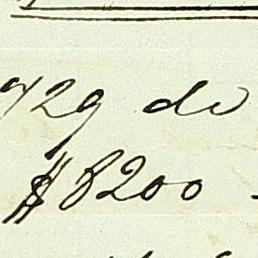 729 do
$8200